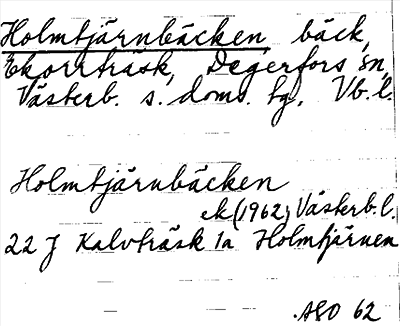 Holmtjärnbäcken, bäck,
Ekorrträsk, Degerfors sn,
Västerb. s. doms. hg, Vb. l.
Holmtjärnbäcken
ek (1962) Västerb. l.
22 J Kalvträsk 1a Holmtjärnen
ASO 62